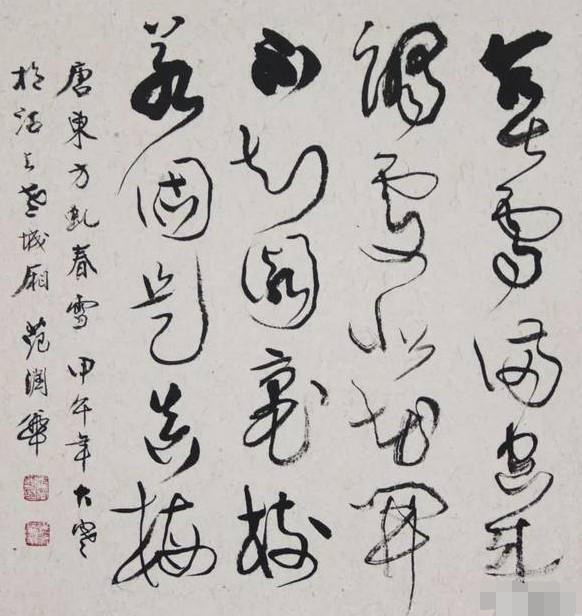 春雪滿空來
觸處似花開
不知園裏樹
若個是真梅
唐東方虬春雪 甲午年大寒
於滬上老城廂 范潤華